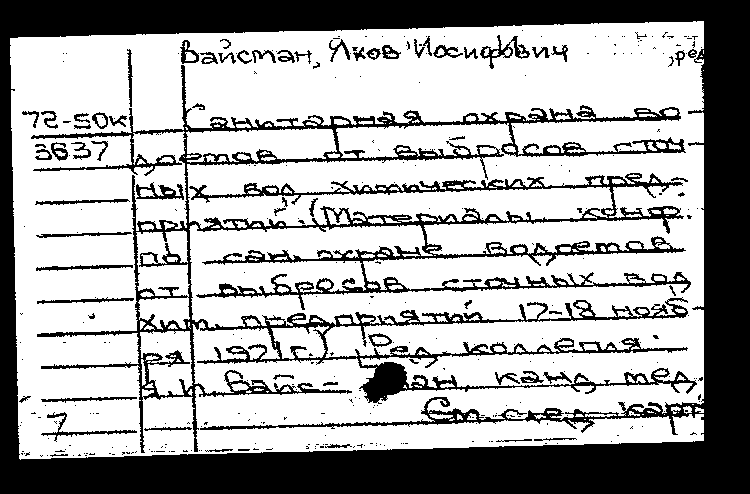 Вайсман, Яков Иосифович
,ред
72-50к Санитарная охрана во-
3637 доемов от выбросов сточ-
ных вод химических пред-
приятий. (Материалы конф.
по сан. охране водоемов
от выбросов сточных вод
хим. предприятий 17-18 нояб-
ря 1971 г.). Ред. коллегия:
Я.И. Вайс- ан, канд. мед.
См. след. карт
7